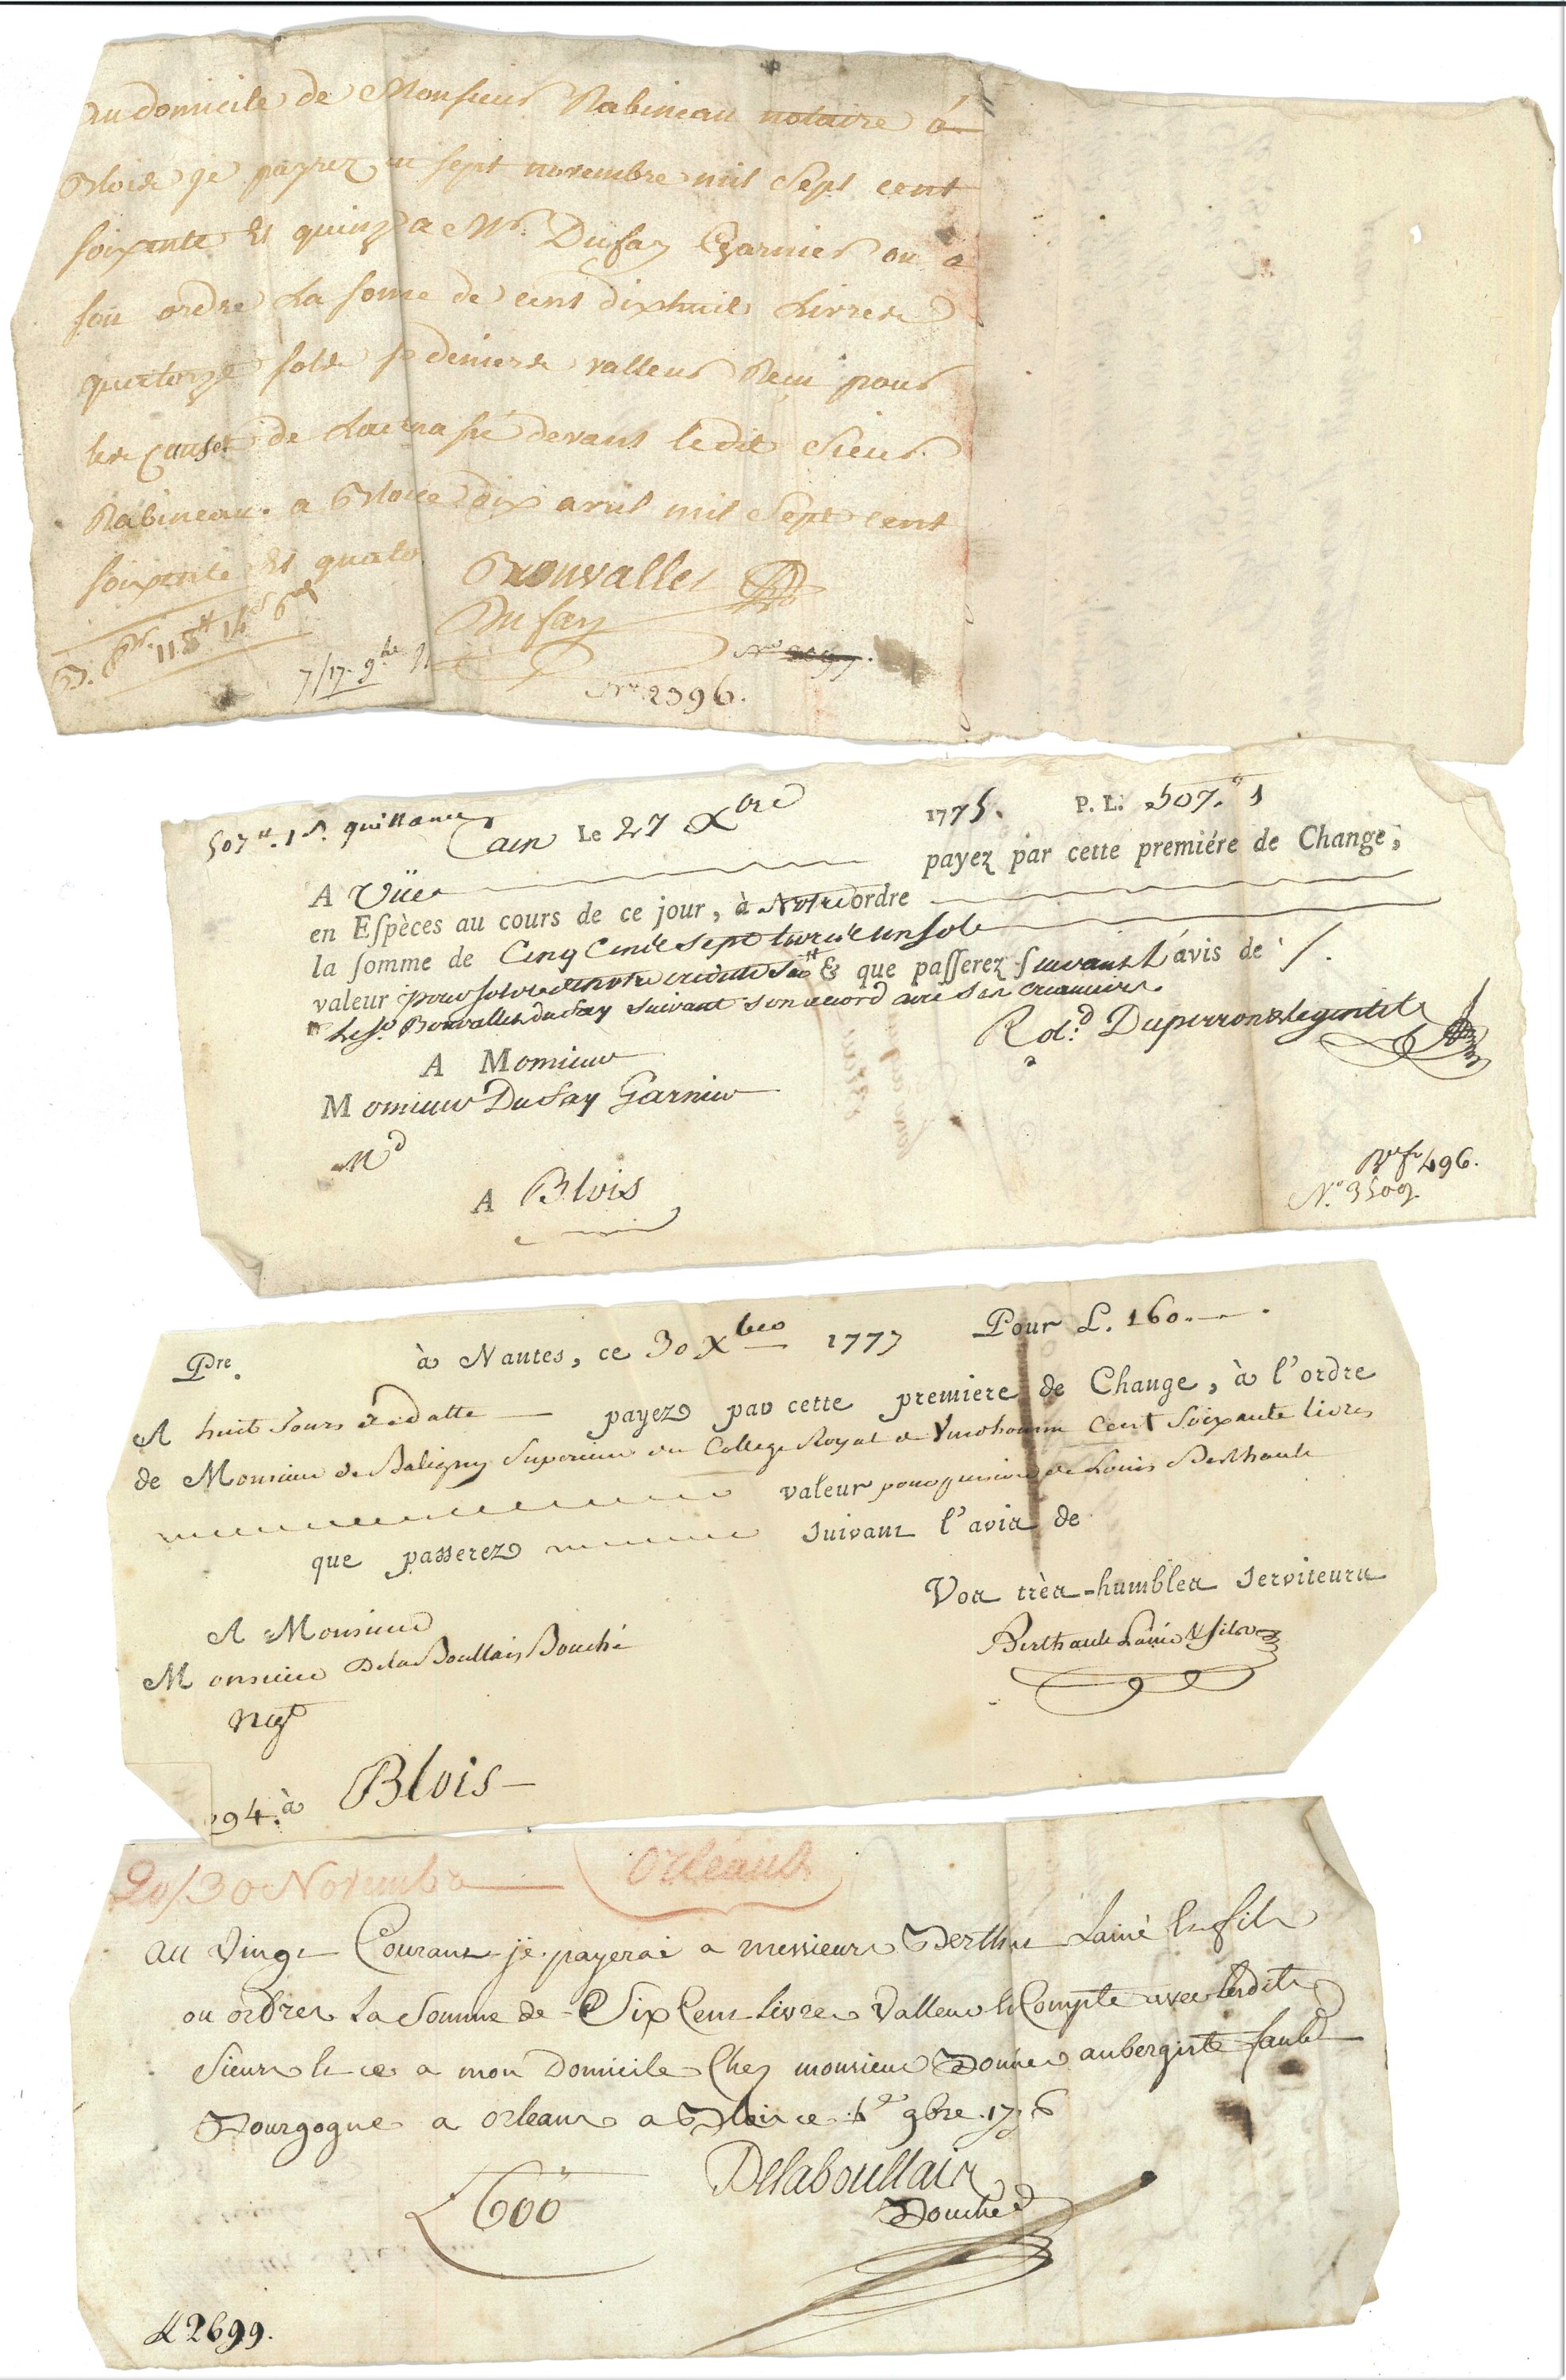 au domicile de Monsieur Rabineau notaire á
Blois je payrez au sept novembre mil sept cent
soixante et quinze a Mr. Dufay Garnier ou a
son ordre la some de cent dixhuit Livres
quatorze sols deniers valleur Recu pour
les causes de devant ledit Sieur
Rabineau. a Blois dix avril mil sept cent
soixante et quato Bonvallet
Dufay
B. Pr. 118tt 14s 6d
7/17. 9bre
No 2396.
507tt. 1s. quittance
Caen Le 27 Xbre 1775. P. L. 507. 1
A Vüe payez par cette premiére de Change,
en Espèces au cours de ce jour, à Notre ordre
la somme de Cinq Cent sept livres un sol
valeur pour solde de notre credit & que passerez suivant l'avis de /.
le Sr. Bonvallet dufay suivant son accord avec ses creanciers.
Rd. Duperron & legentil
A Monsieur
Monsieur Dufay Garnier
Md
A Blois
fo 496.
No. 3509.
Pre. à Nantes, ce 30 Xbre 1777 Pour L. 160.
A huit Jours de datte payez par cette premiere de Change, à l'ordre
de Monsieur de Baligny Superieur du College Royal de Cent Soixante livres
valeur pour pension de Louis Berthault
que passerez suivant l'avis de
Vos très-humbles serviteurs
Berthault Lainé & fils
A Monsieur
Monsieur Dela Boullais Bouché
Negt
94. à Blois
20/30 Novembre Orleans
au Vingt Courant je payerai a messieurs Berthau Lainé & fils
ou ordres La Somme de Six Cent Livres Valleur En Compte avec lesdits
Sieurs & ce a mon Domicile Chez monsieur aubergiste faubd
Bourgogne a orleans a Blois ce 1er 9bre. 1776
Delaboullais
Bouché
L 600
2699.